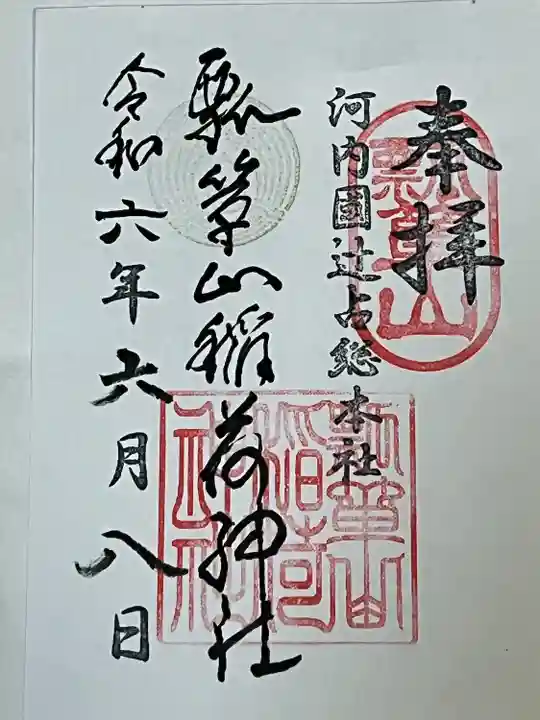 奉拝
瓢箪山
河内國辻占総本社
瓢箪山
稲荷
神社
瓢箪山稲荷神社
令和六年六月八日